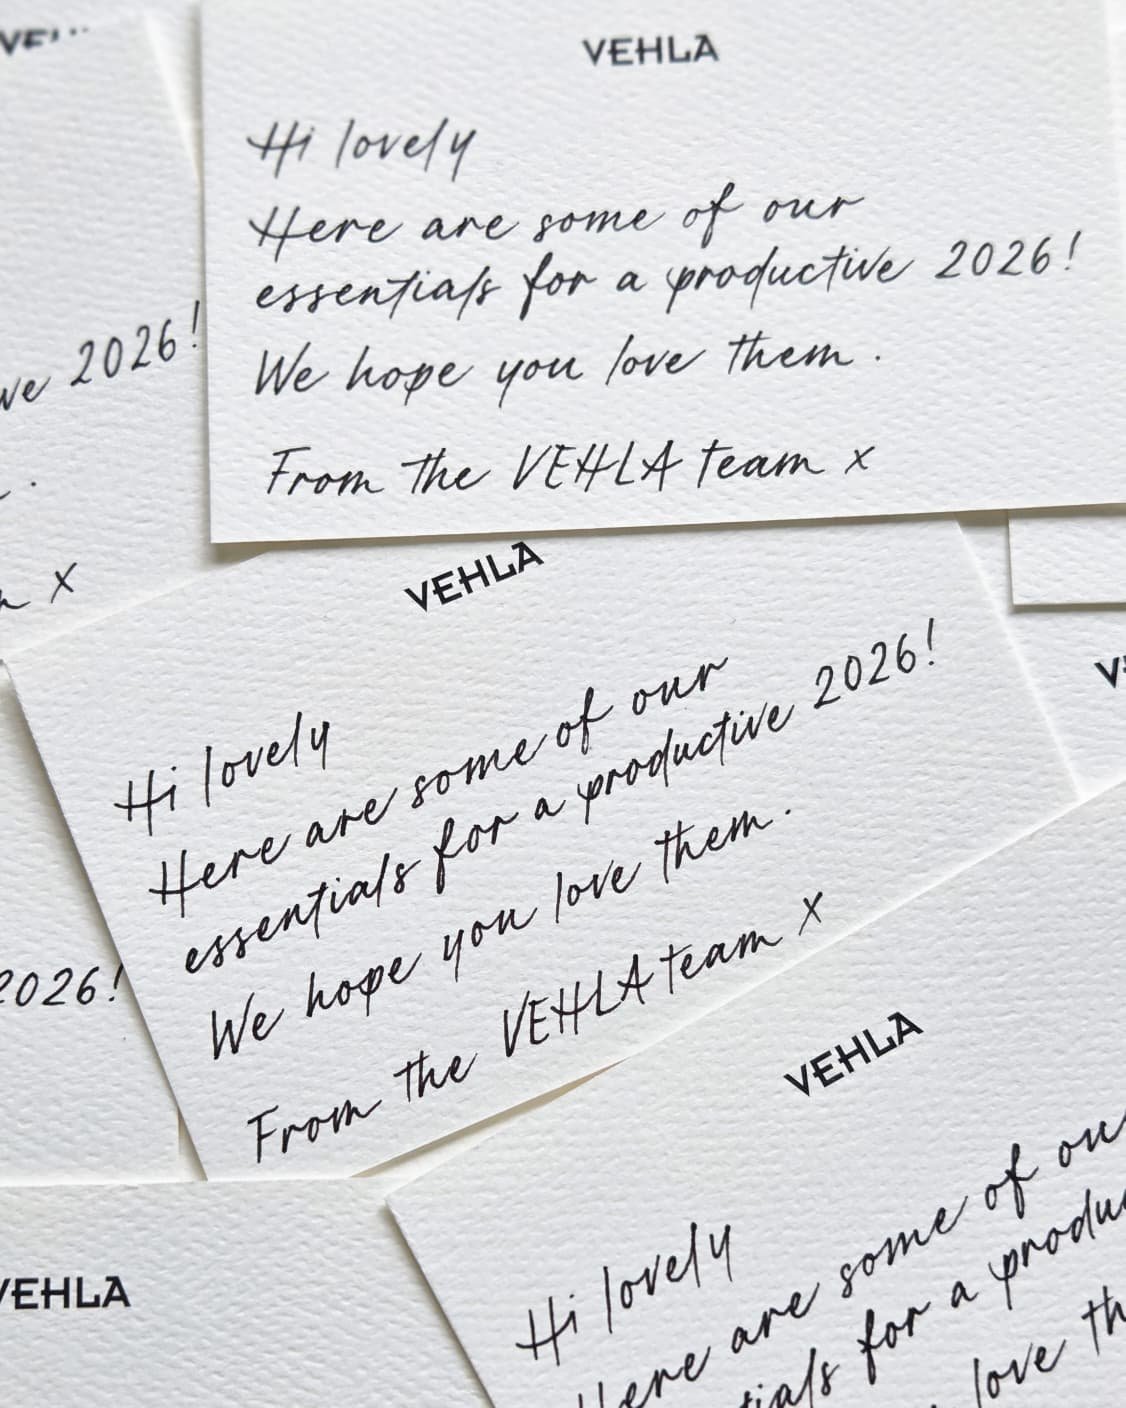 VEHLA
Hi lovely
Here are some of our
essentials for a productive 2026!
We hope you love them.
From the VEHLA team x
2026!
x
VEHLA
Hi lovely
Here are some of our
essentials for a productive 2026!
We hope you love them.
From the VEHLA team x
2026!
VEHLA
VEHLA
Hi lovely
Here are some of ou
tials for a produ
love th